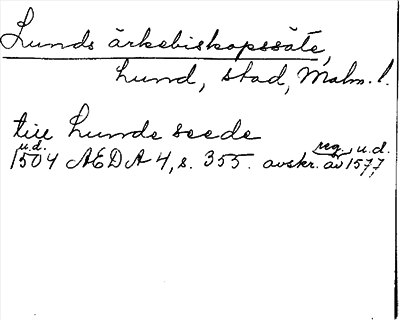 Lunds ärkebiskopssäte,
Lund, stad, Malm. l.
till Lunde seede
u.d. reg. u.d.
1504 AEDA 4, s. 355. avskr. av 1577,